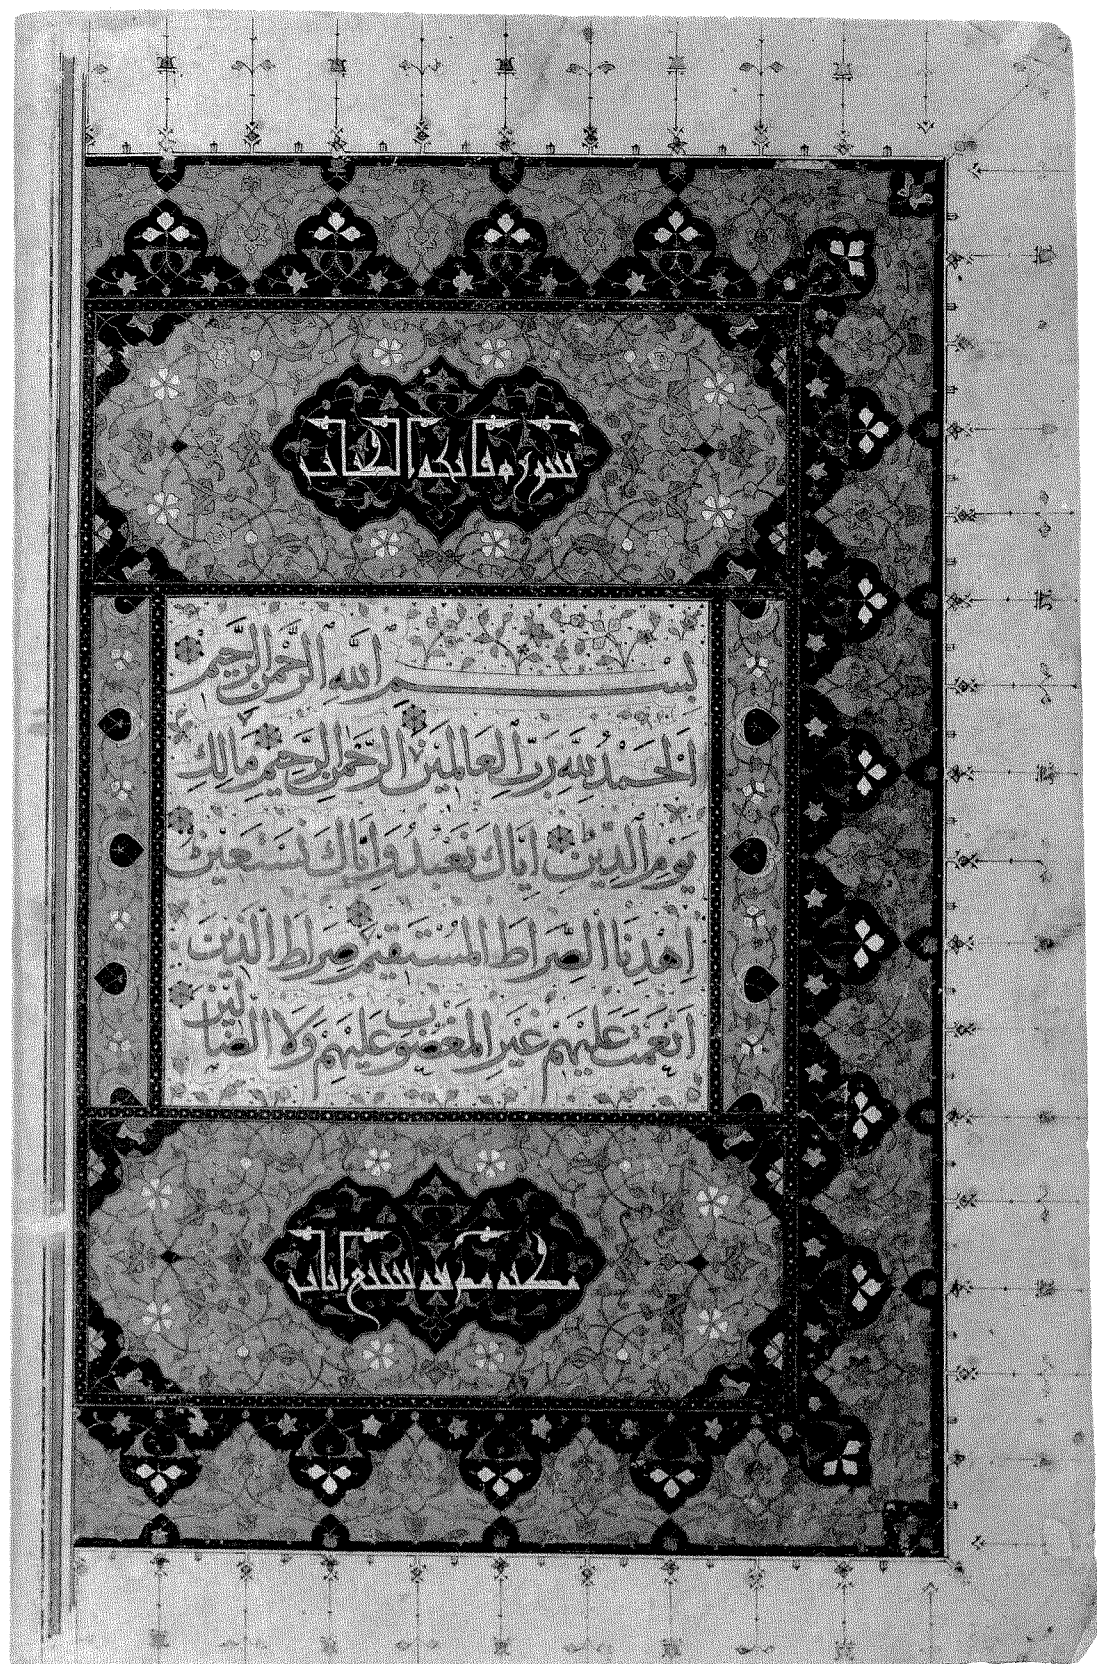 سورة فاتحة الكتاب
بسم الله الرحمن الرحيم
الحمد لله رب العالمين الرحمن الرحيم مالك
يوم الدين اياك نعبد واياك نستعين
اهدنا الصراط المستقيم صراط الذين
انعمت عليهم غير المغضوب عليهم ولا الضالين
مكية مدنية سبع ايات